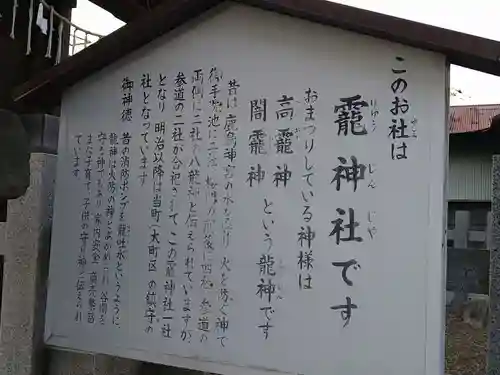 このお社は
やしろ
龗神社です
りゅうじんじゃ
おまつりしている神様は
高龗神
闇龗神
という龍神です
昔は鹿島神宮の水などり 火を防ぐ神で
御手洗池に二社 の前後に四社 参道の
両側に二社で八龍神と伝えられています
参道の二社が合祀されて この龍神社一社
となり 明治以降は当町(大町区)の鎮守の
社となっています
御神徳
昔の消防ポンプを龍吐水というように
龍神は消防の神とあがめられ 谷間を
守る神でもあり 家内安全 商売繁昌
また子育て 子供の守り神と伝えられ
ています